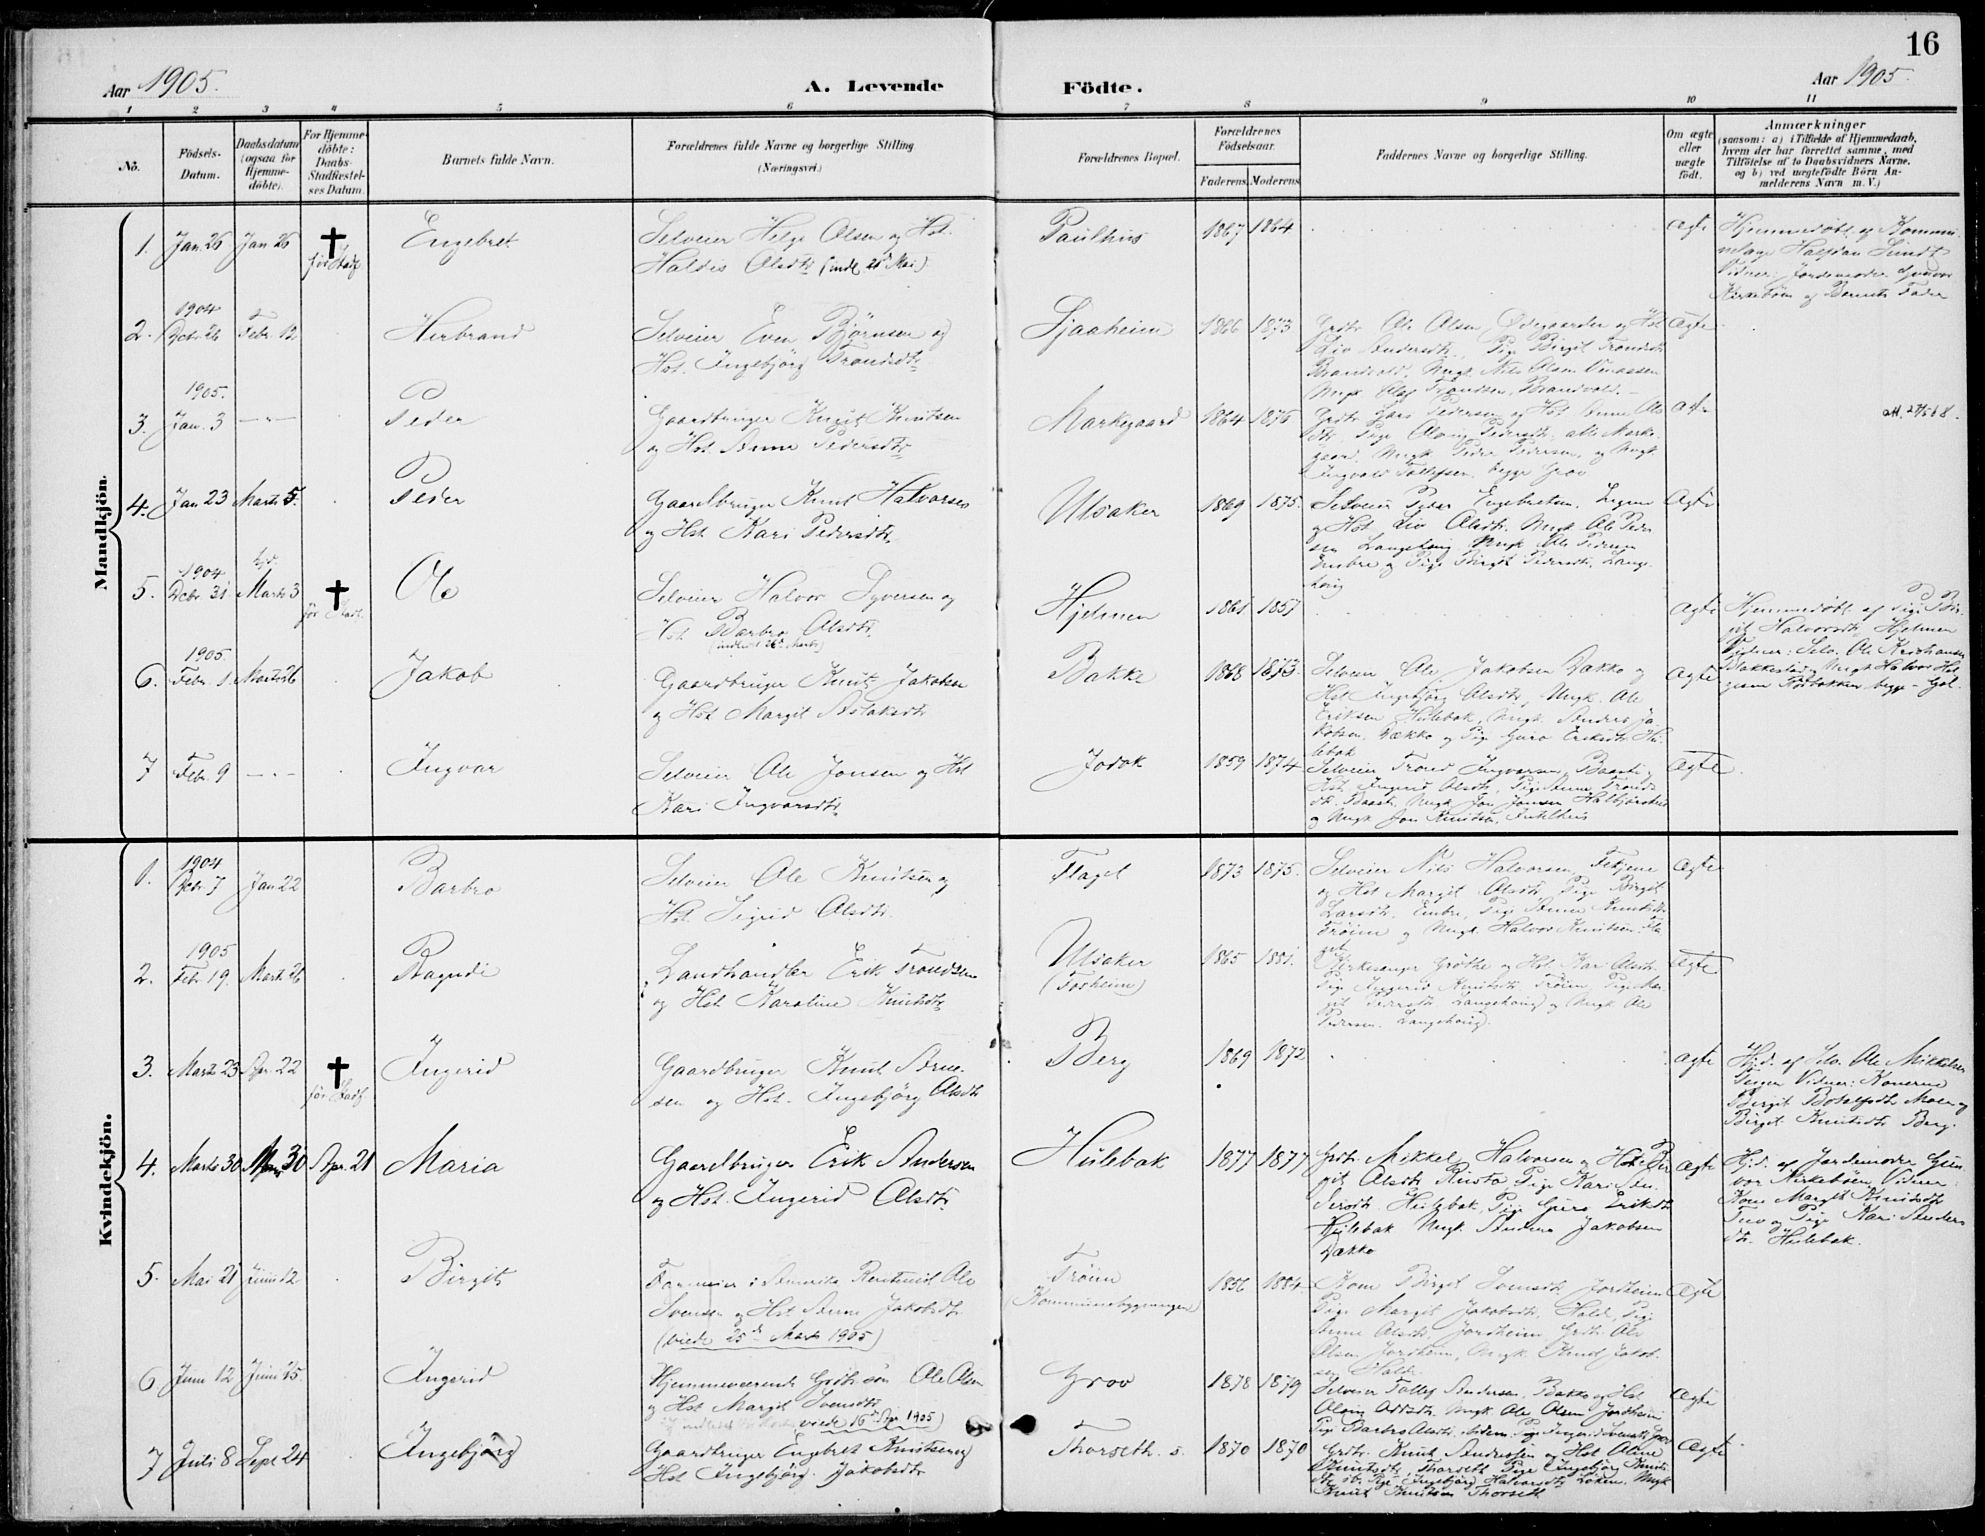 16
Aar 1905.
A. Levende Födte.
Aar 1905.
1 2 3 4 5 6 7 8 9 10 11
No.
Födsels-Datum.
Daabsdatum (ogsaa for Hjemme-döbte).
For Hjemme-döbte: Daabs-Stadfæstel-ses Datum.
Barnets fulde Navn.
Forældrenes fulde Navne og borgerlige Stilling (Næringsvei.)
Forældrenes Bopæl.
Forældrenes Födselsaar.
Faderens. Moderens.
Faddernes Navne og borgerlige Stilling.
Om ægte eller uægte födt.
Anmærkninger
(saasom: a) i Tilfælde af Hjemmedaab, hvem der har forrettet samme, med Tilföielse af to Daabsvidners Navne, og b) ved uægtefödte Börn An-melderens Navn m. V.)
Mandkjön.
1. Jan. 26 Jan 26 † før Stadf. Engebret
Selveier Helge Olsen og Hst.
Haldis Olsdtr
Paulhus 1867 1864 ægte
Hjemmedøbt af
Halfdan Sundt
Vidner: Jordemoder
Kirkebøen og Barnets Fader
2. 1904 Dcbr. 26 Febr. 12 Herbrand
Selveier Even Bjørnsen og
Hst. Ingebjørg Trondsdtr
Sjaaheim 1866 1873
Grdbr. Ole Olsen Ødegaarden og Hst
Liv Andersdtr, Pige Birgit Trondsdtr
Brandvold, Ungk. Nils Olsen
Ungk. Olaf Trondsen, Brandvold.
Ægte
3. 1905. Jan. 3 — " — Peder
Gaardbruger Knut Knutsen
og Hst. Anne Pedersdtr
Markegaard 1864 1876
Grdbr Lars Pedersen og Hst Anne Ols
dtr, Pige Pedersdtr. alle Marke-
gaard, Ungk. Peder Pedersen, og Ungk.
Ingvald Tollefsen, begge Grov
Ægte
4. Jan 23 Marts 5. Peder
Gaardbruger Knut Halvorsen
og Hst. Kari Pedersdtr.
Ulsaker 1869 1875.
Selveier Peder Engebretsen,
og Hst. Liv Olsdtr. Ungk Ole Peder
sen Langehaug Ungk Ole Pedersen
Embre, og Pige Birgit Pedersdtr, Lange-
haug
Ægte
5. 1904 Dcbr. 31 Marts 3 † før Stadf. Ole
Selveier Halvor Syversen og
Hst. Barbro Olsdtr.
Hjelmen 1861 1857 Ægte
Hjemmedøbt af Pige Bir-
git Halvorsdtr Hjelmen
Vidner: Selv. Ole Kristiansen
Bakkestad, Ungk Halvor Hel-
gesen begge - Gol.
6. 1905. Febr. 1 Marts 26 Jakob
Gaardbruger Knut Jakobsen
og Hst. Margit Aslaksdtr
Bakke 1868 1873.
Selveier Ole Jakobsen Bakko og
Hst. Ingebjørg Olsdtr, Ungk. Ole
Eriksen Hulebak, Ungk. Anders Ja-
kobsen, Bakko og Pige Guro Eriksdtr. Hu-
lebak
Ægte
7 Febr. 9 — " — Ingvar
Selveier Ole Jonsen og Hst
Kari Ingvarsdtr.
Jodok 1859 1874
Selveier Trond Ingvarsen, Baasti og
Hst. Ingerid Olsdtr, Pige Anne Tronds
dtr. Baasti, Ungk Jon Jonsen
og Ungk Jon Knutsen,
Ægte
Kvindekjön.
1. 1904 Dcbr 7 Jan 22 Barbro
Selveier Ole Knutsen og
Hst. Sigrid Olsdtr.
Flaget 1873 1875.
Selveier Nils Halvorsen,
og Hst Margit Olsdtr. Pige Birgit
Larsdtr, Embre, Pige Anne Knutsdtr
Trøim og Ungk. Halvor Knutsen. Fla
get
Ægte
2. 1905 Febr 19. Marts 26 Ragndi
Landhandler Erik Trondsen
og Hst Karoline Knutsdtr
Ulsaker
(Fosheim) 1865 1881.
Kirkesanger Grøthe og Hst Kari Olsdtr.
Pige Ingerid Knutsdtr Trøim, Pige Mar
git Pedersdtr Langehaug og Ungk Ole
Pedersen. Langehaug.
Ægte
3. Marts 23 Apr. 22 † før Stadf. Ingerid
Gaardbruger Knut Arne-
sen og Hst. Ingebjørg Olsdtr
Berg 1869 1872 ægte
Hj.d. af Selv. Ole Mikkelsen
Vidner: Konerne
Birgit Botolfsdtr Moen og
Birgit Knutsdtr Berg.
4. Marts 30 30 Apr. 21 Maria
Gaardbruger Erik Andersen
og Hst. Ingerid Olsdtr
Hulebak 1877 1877
Grdbr. Mikkel Halvorsen og Hst. Bir
git Olsdtr Rusto Pige Kari An-
dersdtr. Hulebak, Pige Guro Eriksdtr
Hulebak Ungk. Anders Jakobsen
Bakko
Ægte
Hj.d. af Jordemoder Gun-
vor Kirkebøen, Vidner
Kone Margit Knutsdtr
og Pige Kari Anders
dtr. Hulebak.
5. Mai 21 Juni 12 Birgit
Farmeier i Amerika Ole
Svensen og Hst Anne Jakobsdtr
(viede 25de Marts 1905)
Trøim
(Kommunebygningen) 1856 1884
Kone Birgit Svensdtr Jordheim
Pige Margit Jakobsdtr, Hald, Pige
Anne Olsdtr, Jordheim, Grdb. Ole
Olsen Jordheim, Ungk. Knut Jakob-
sen Hald.
Ægte
6 Juni 12 Juni 25. Ingerid
Hjemmeværende Grdbr. søn Ole Olsen
og Hst Margit Svensdtr
viede 16de Apr 1905)
Grov 1878 1879
Selveier Tollef Andersen, Bakko og Hst
Ungk. Ole Olsen Jordheim
Pige Barbro Olsdtr, ibidem. Pige Ingerid Svensdtr Grov
Ægte
7 Juli 8 Sept 24 Ingebjørg
Gaardbruger Engebret Knutsen og
Hst Ingebjørg. Jakobsdtr
Thorseth. s. 1870 1870
Grdbr. Knut Andersen og Hst
Knutsdtr, Thorseth, Pige Ingebjørg Knuts
dtr ib. Pige Ingebjørg Halvorsdtr Løken, Ungk
Knut Knutsen Thorseth
Ægte